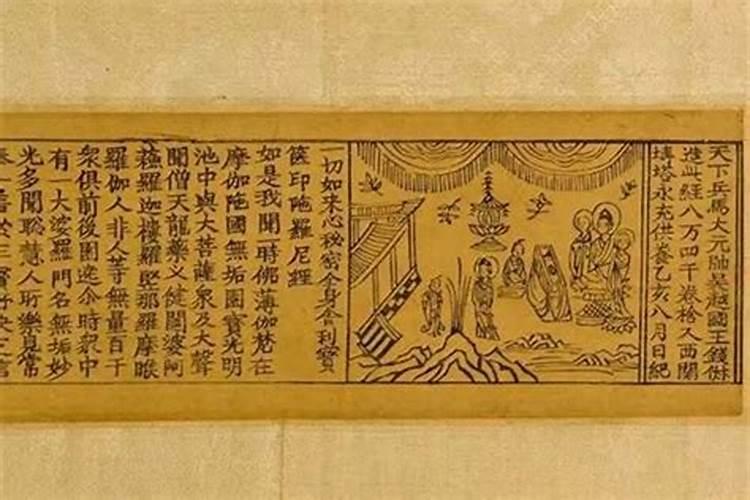 天下兵馬大元帥吳越國王錢俶
造此經八万四千卷捨入西關
塼塔永充供養乙亥八月日紀
一切如來心秘密全身舍利寶
篋印陁羅尼經
如是我聞一時佛薄伽梵在
摩伽陁國無垢園寶光明
池中與大菩薩衆及大聲
聞僧天龍藥叉健闥婆阿
蘓羅迦樓羅緊那羅摩睺
羅伽人非人等無量百千
衆俱前後圍遶尒時衆中
有一大婆羅門名無垢妙
光多聞聰慧人所樂見常